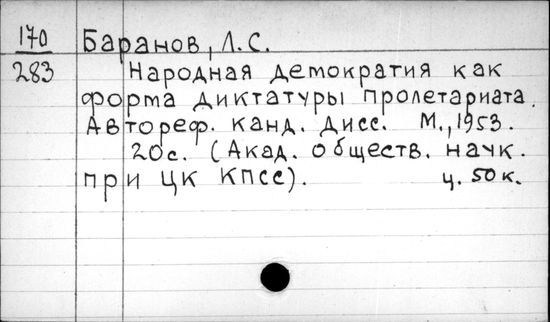 170 Баранов, Л.С.
283 Народная демократия как
форма диктатуры пролетариата.
Автореф. канд. дисс. М., 1953.
20с. (Акад. обществ. наук.
при ЦК КПСС). ц. 50к.